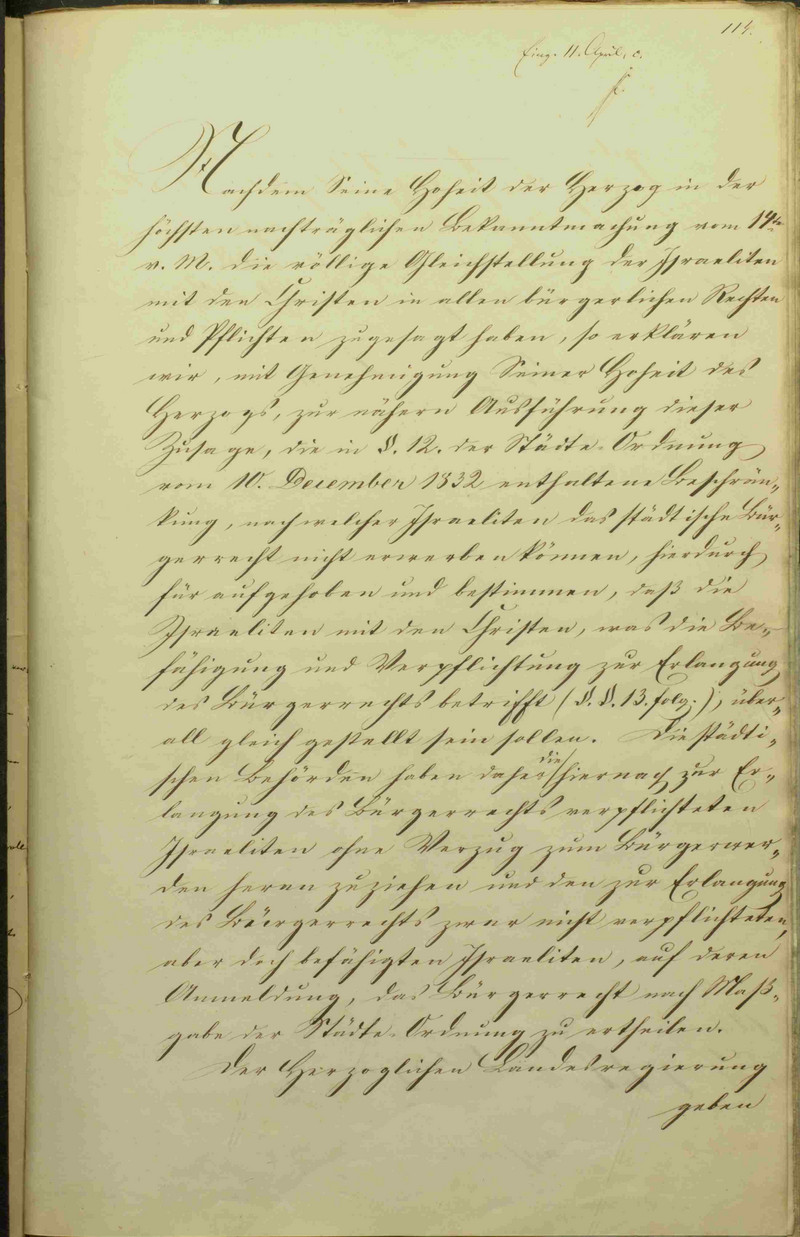 114.
Eing. 11. April, c.
Nachdem Seine Hoheit der Herzog in der
höchsten nachträglichen Bekanntmachung vom 14ten
v. M. die völlige Gleichstellung der Israeliten
mit den Christen in allen bürgerlichen Rechten
und Pflichten zugesagt haben, so erklären
wir, mit Genehmigung Seiner Hoheit des
Herzogs, zur nähern Ausführung dieser
Zusage, die in §. 12. der Städte-Ordnung
vom 10. December 1832 enthaltene Beschrän-
kung, nach welcher Israeliten das städtische Bür-
gerrecht nicht erwerben können, hierdurch
für aufgehoben und bestimmen, daß die
Israeliten mit den Christen, was die Be-
fähigung und Verpflichtung zur Erlangung
des Bürgerrechts betrifft (§. §. 13. folg.), über-
all gleich gestellt sein sollen. Die städti-
schen Behörden haben daher die hiernach zur Er-
langung des Bürgerrechts verpflichteten
Israeliten ohne Verzug zum Bürgerwer-
den heran zuziehen und den zur Erlangung
des Bürgerrechts zwar nicht verpflichteten,
aber doch befähigten Israeliten, auf deren
Anmeldung, das Bürgerrecht nach Maß-
gabe der Städte-Ordnung zu ertheilen.
Der Herzoglichen Landesregierung
geben